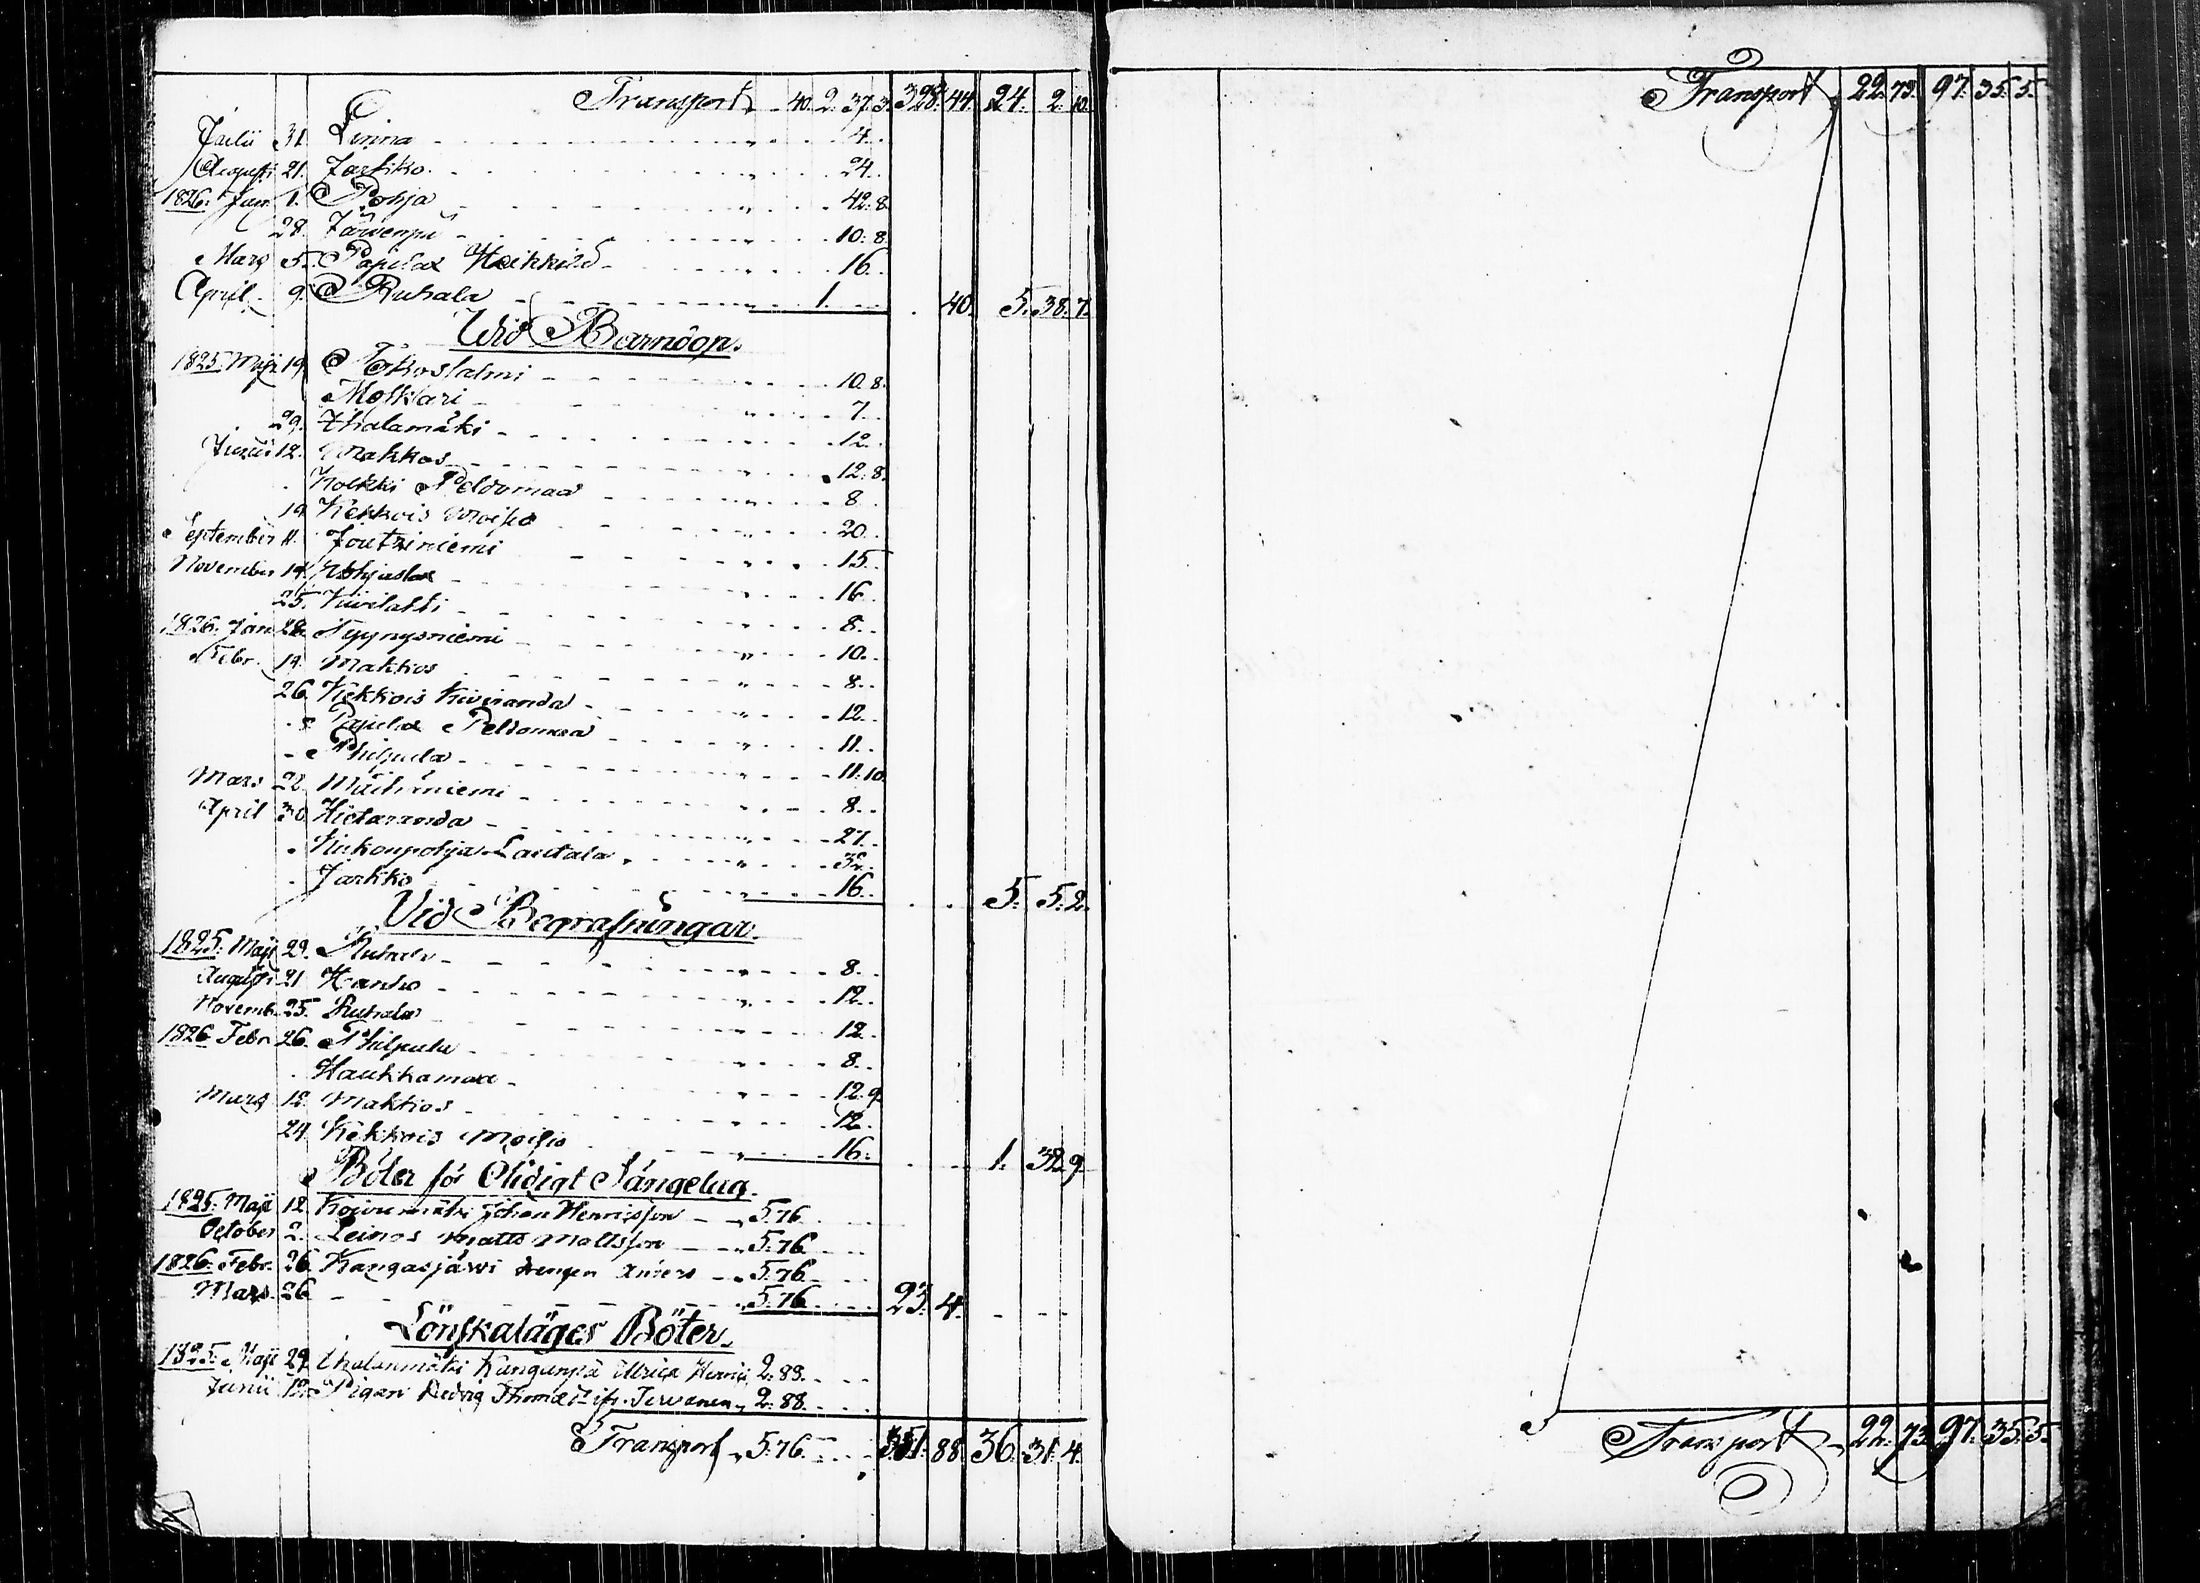 Transport 40. 2. 37. 3. 328. 44. 24. 2. 10.
Julii 31. Linna 4.
Augusti 21. Jarkko 24.
1826. Jan. 1. Pohja 42. 8.
28. Järvenpä 10. 8.
Mars 5. Pajula Heikkilä 16.
April 9. Ruhala 1. 40. 5. 38. 7.
Vid Barndop.
1825. Maji 19. Tokoslalmi 10. 8.
Motkari 7.
29. Ihalamäki 12.
Junii 12. Makkos 12. 8.
Kolkki Peldomaa 8.
19. Kekkois Moisio 20.
September 11. Joutziniemi 15.
November 14. Pohjasta 16.
25. Kivilahti 8.
1826. Jan. 28. Tyynysniemi 10.
Febr. 19. Makkos 8.
26. Kekkois Kiviranda 12.
Pajula Peldomaa 11.
Philpula 11. 10.
Mars 22. Mäihäniemi 8.
April 30. Hietaranda 27.
Kirkonpohja Lautala 32.
Jarkko 16. 5. 5. 2.
Vid Begrafningar.
1825. Maji 29. Ruhala 8.
Augusti 21. Hanho 12.
Novemb. 25. Ruhala 12.
1826 Febr. 26. Philpula 8.
Haukkamaa 12. 9.
Mars 12. Makkos 12.
24. Kekkois Moisio 16. 1. 32. 9.
Böter för Olidigt Sängelag.
1825. Maji 12. Koivumäki Johan Henricsson 5. 76.
October 2. Leinos Matts Mattsson 5. 76.
1826. Febr. 26. Kangasjärvi drengen Anders 5. 76.
Mars 26. 5. 76. 23. 4.
Lönskaläges Böter.
1825. Maji 29. Ihalanmäki Kanganpä Ulrica Henrics 2. 88.
Junii 12. Pigan Hedvig Thomæ Tervanen 2. 88.
Transport 5. 76. 351. 88. 36. 31. 4.
Transport 22. 73. 97. 35. 5.
Transport 22. 73. 97. 35. 5.